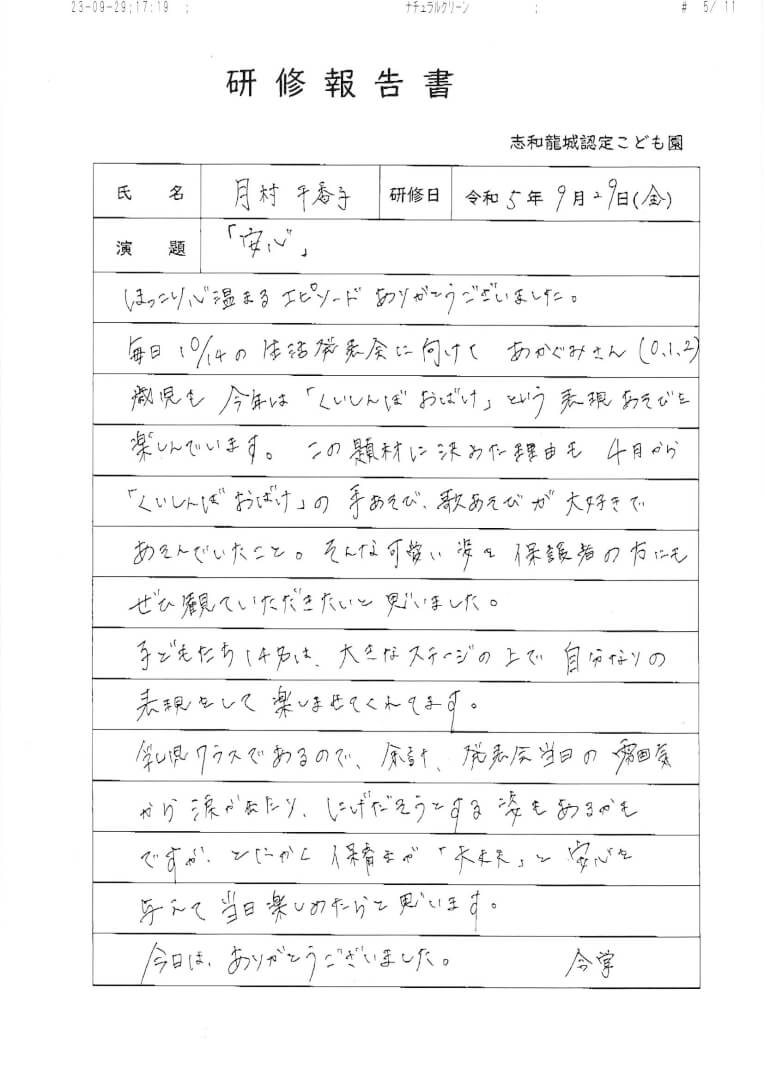 23-09-29;17:19 ; ナチュラルクリーン ; # 5/ 11
研修報告書
志和龍城認定こども園
氏 名 月村 千香子 研修日 令和5年9月29日(金)
演 題 「安心」
ほっこり心温まるエピソードありがとうございました。
毎日10/14の生活発表会に向けて あかぐみさん(0.1.2)
歳児も 今年は「くいしんぼおばけ」という表現あそびを
楽しんでいます。 この題材に決めた理由も 4月から
「くいしんぼおばけ」の手あそび、歌あそびが大好きで
あそんでいたこと。そんな可愛い姿を保護者の方にも
ぜひ観ていただきたいと思いました。
子どもたち14名は、大きなステージの上で自分なりの
表現をして楽しませてくれてます。
乳児クラスであるので、余計、発表会当日の雰囲気
から涙が出たり、にげだそうとする姿もあるかも
ですが、とにかく保育士が「大丈夫」と安心を
与えて当日楽しめたらと思います。
今日は、ありがとうございました。 合掌